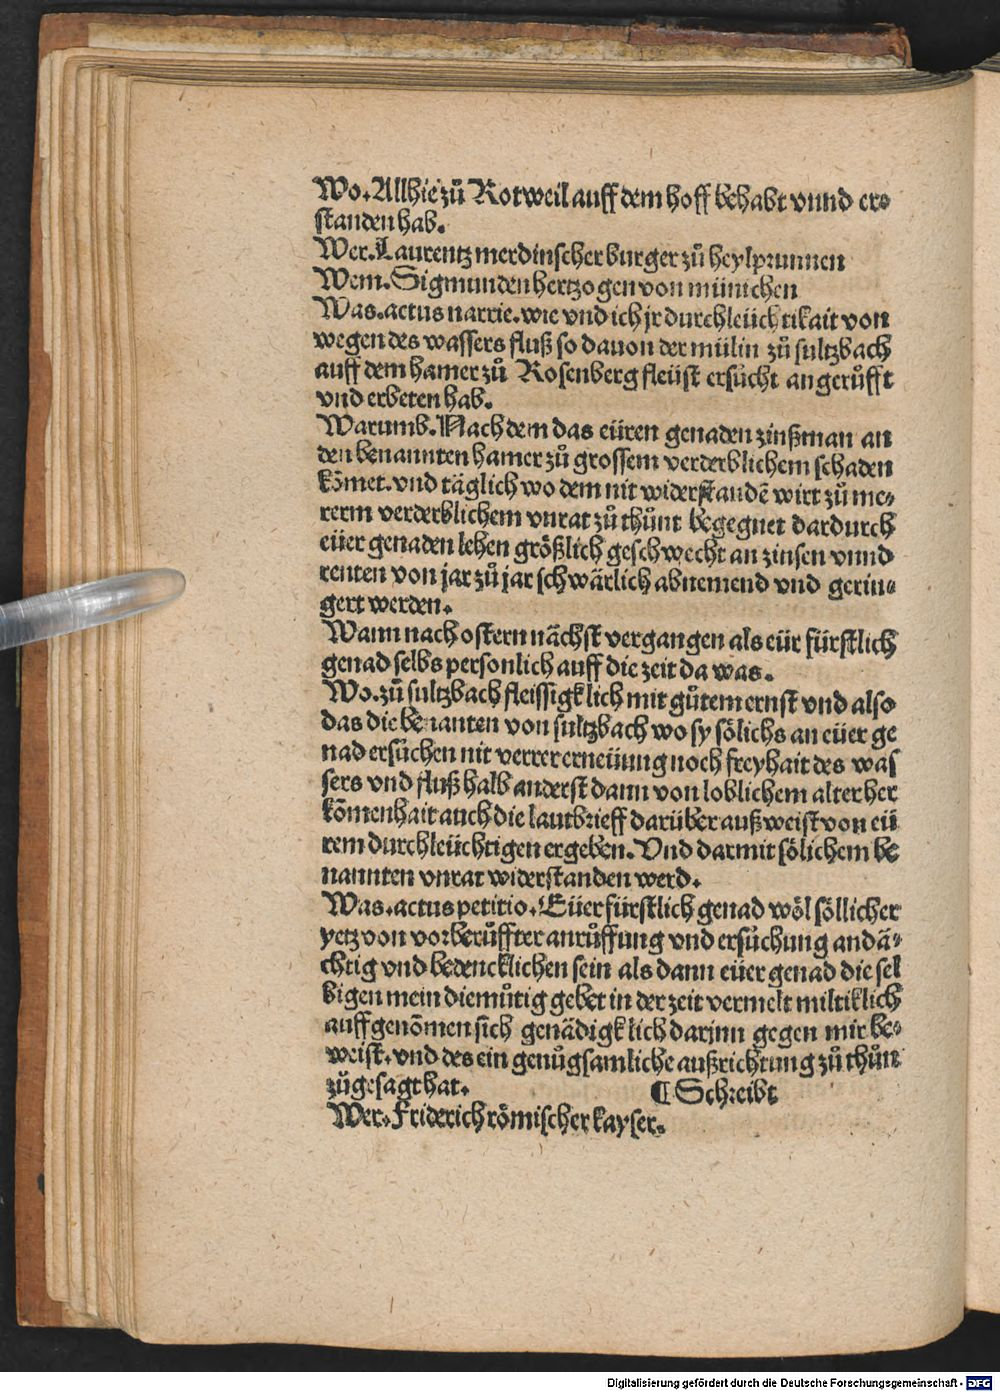 Wo. Allhie zů Rotweil auff dem hoff behabt vnnd er⸗
standen hab.
Wer. Laurentz merdinscher burger zů heylprunnen
Wem. Sigmunden hertzogen von münichen
Was. actus narrie. wie vnd ich jr durchleüchtikait von
wegen des wassers fluß so dauon der mülin zů sultzbach
auff dem hamer zů Rosenberg fleüst ersůcht angerůfft
vnd erbeten hab.
Warumb. Nach dem das eüren genaden zinßman an
den benannten hamer zů grossem verderblichem schaden
kōmet. vnd täglich wo dem nit widerstandē wirt zů me⸗
rerm verderblichem vnrat zů thůnt begegnet dardurch
eüer genaden lehen größlich geschwecht an zinsen vnnd
renten von jar zů jar schwärlich abnemend vnd gerin⸗
gert werden.
Wann nach ostern nächst vergangen als eür fürstlich
genad selbs personlich auff die zeit da was.
Wo. zů sultzbach fleissigklich mit gůtem ernst vnd also
das die benanten von sultzbach wo sy sölichs an eüer ge
nad ersůchen nit verrer erneüung noch freyhait des was
sers vnd fluß halb anderst dann von loblichem alter her
kōmen hait auch die lautbrieff darüber außweist von eü
rem durchleüchtigen ergeben. Vnd darmit sölichem be
nannten vnrat widerstanden werd.
Was. actus petitio. Eüer fürstlich genad wöl söllicher
yetz von vorberůffter anrůffung vnd ersůchung andä⸗
chtig vnd bedencklichen sein als dann eüer genad die sel
bigen mein diemůtig gebet in der zeit vermelt miltiklich
auffgenōmen sich genädigklich darjnn gegen mir be⸗
weist. vnd des ein genůgsamliche außrichtung zů thůn
zůgesagt hat. ¶ Schreibt
Wer. Friderich römischer kayser.
Digitalisierung gefördert durch die Deutsche Forschungsgemeinschaft - DFG